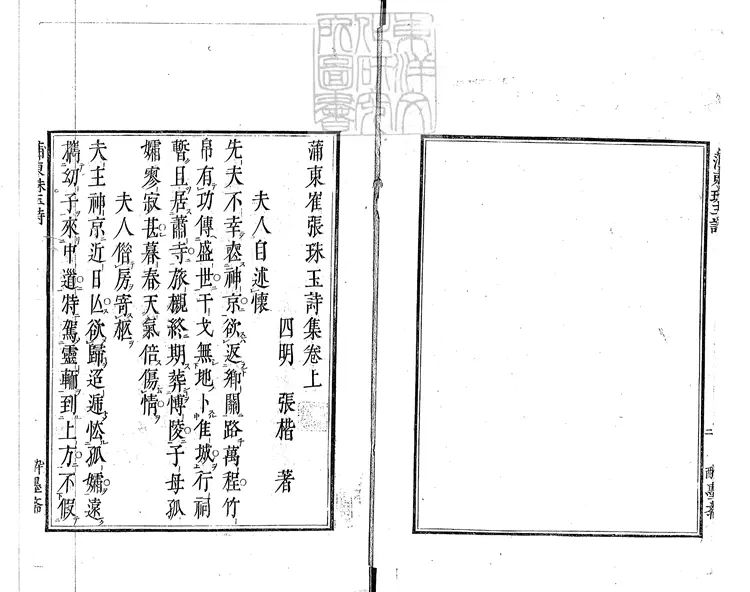 東洋文
化研究
所圖書
蒲東崔張珠玉詩集卷上
四明 張楷 著
夫人自述懷
先夫不幸歿神京欲返鄉關路萬程竹
帛有功傳盛世干戈無地卜佳城行祠
暫且居蕭寺旅櫬終期葬博陵子母孤
孀寥寂甚暮春天氣倍傷情
夫人僦房寄柩
夫主神京近日亾欲歸迢遞忪孤孀遠
携幼子來中道特駕靈輀到上方不假
蒲東珠玉詩
酔墨斎